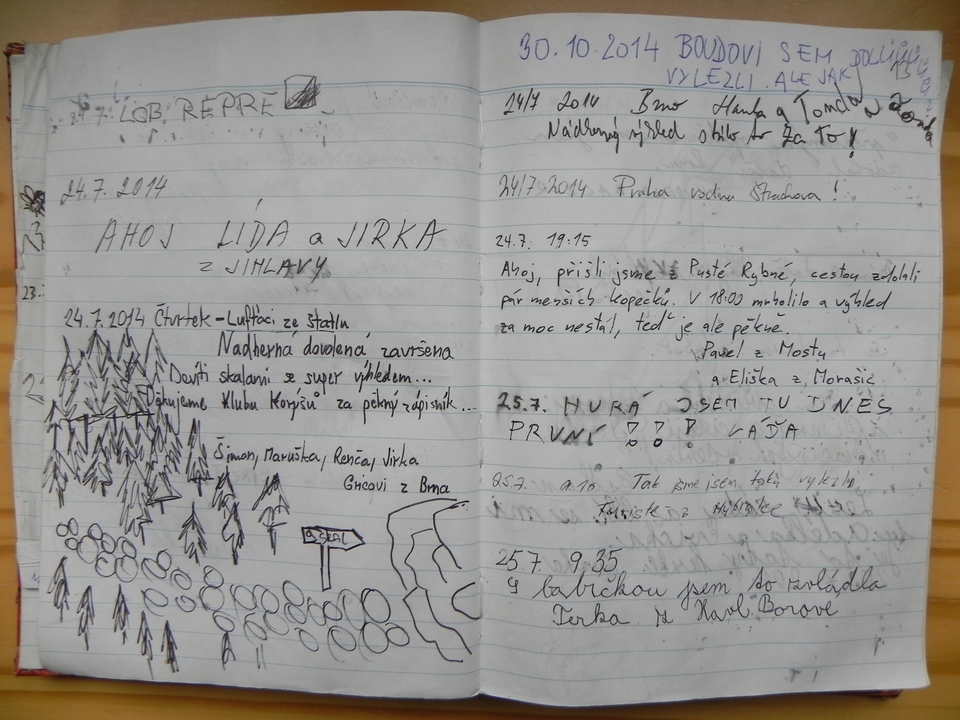 LOB. REPRE
24.7. 2014
AHOJ LÍDA a JIRKA
z JIHLAVY
23.
24.7.2014 Čtvrtek - Lufťáci ze štatlu
Nádherná dovolená završena
Devíti skalami se super výhledem...
Děkujeme Klubu Korpišů za pěkný zápisník...
Šimon, Maruška, Renča, Jirka
Gricovi z Brna
9 SKAL
30.10.2014 BOUDOVI SEM DOLU
VYLEZLI. ALE JAK
24/7 2014 Brno Hanka a Tomáš a
Nádherný výhled stálo to za to!
24/7 2014 Praha vodnu Strachova!
24.7. 19:15
Ahoj, přišli jsme z Pusté Rybné, cestou zdolali
pár menších kopečků. V 18:00 mrholilo a výhled
za moc nestál, teď je ale pěkně.
Pavel z Mostu
a Eliška z Morašic
25.7. HURÁ JSEM TU DNES
PRVNÍ !!! LÁĎA
25.7. 9.10 Tak jsme jsem taky vylezli
Turisté z
25.7. 9.35
S babičkou jsem to zvládla
Terka z Havl. Borové